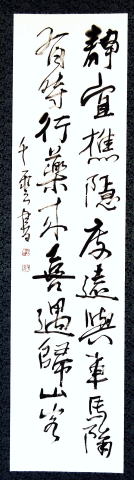 靜宜樵隱度遠與車馬隔
有時行藥來喜遇歸山客
千雲書